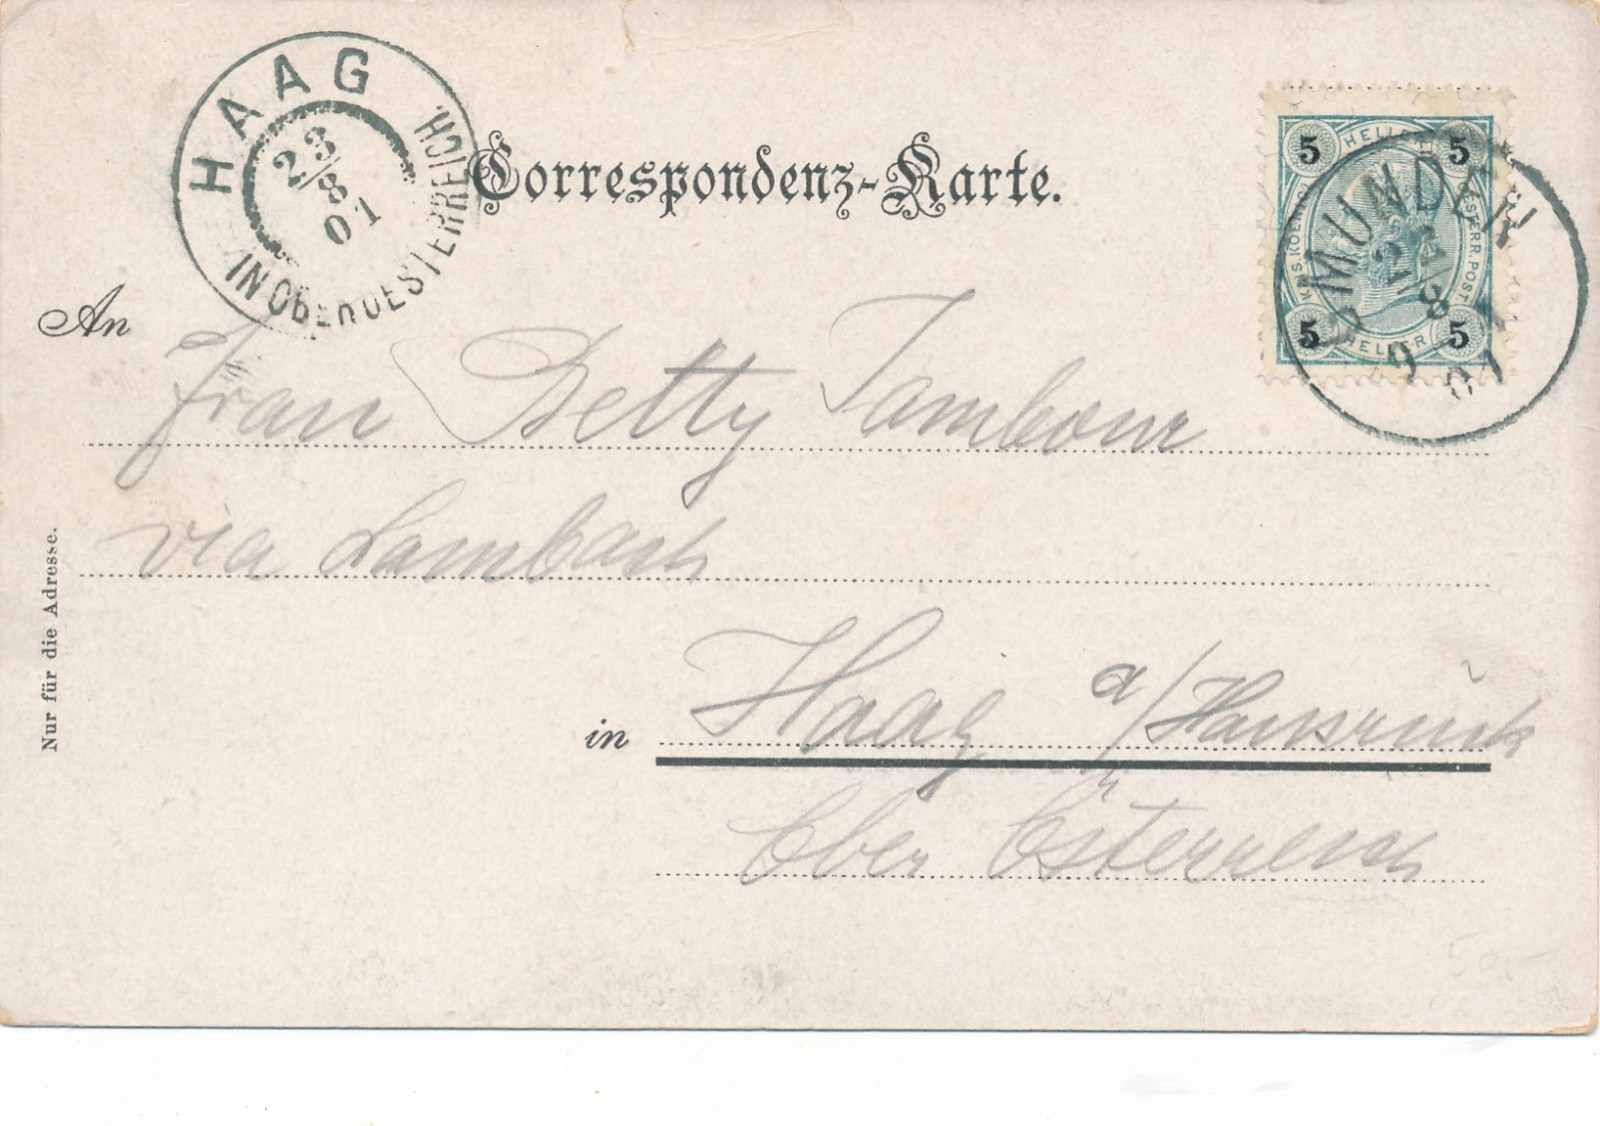 HAAG
IN OBEROESTERREICH.
23/8
01
Correspondenz-Karte.
5 HELLER 5
KAIS. KOENIGL. OESTERR. POST.
5 HELLER 5
GMUNDEN
8
01
9
An
Frau Betty Tambour
via Lambach
in Haag a/Hausruck
Ober Österreich
Nur für die Adresse.